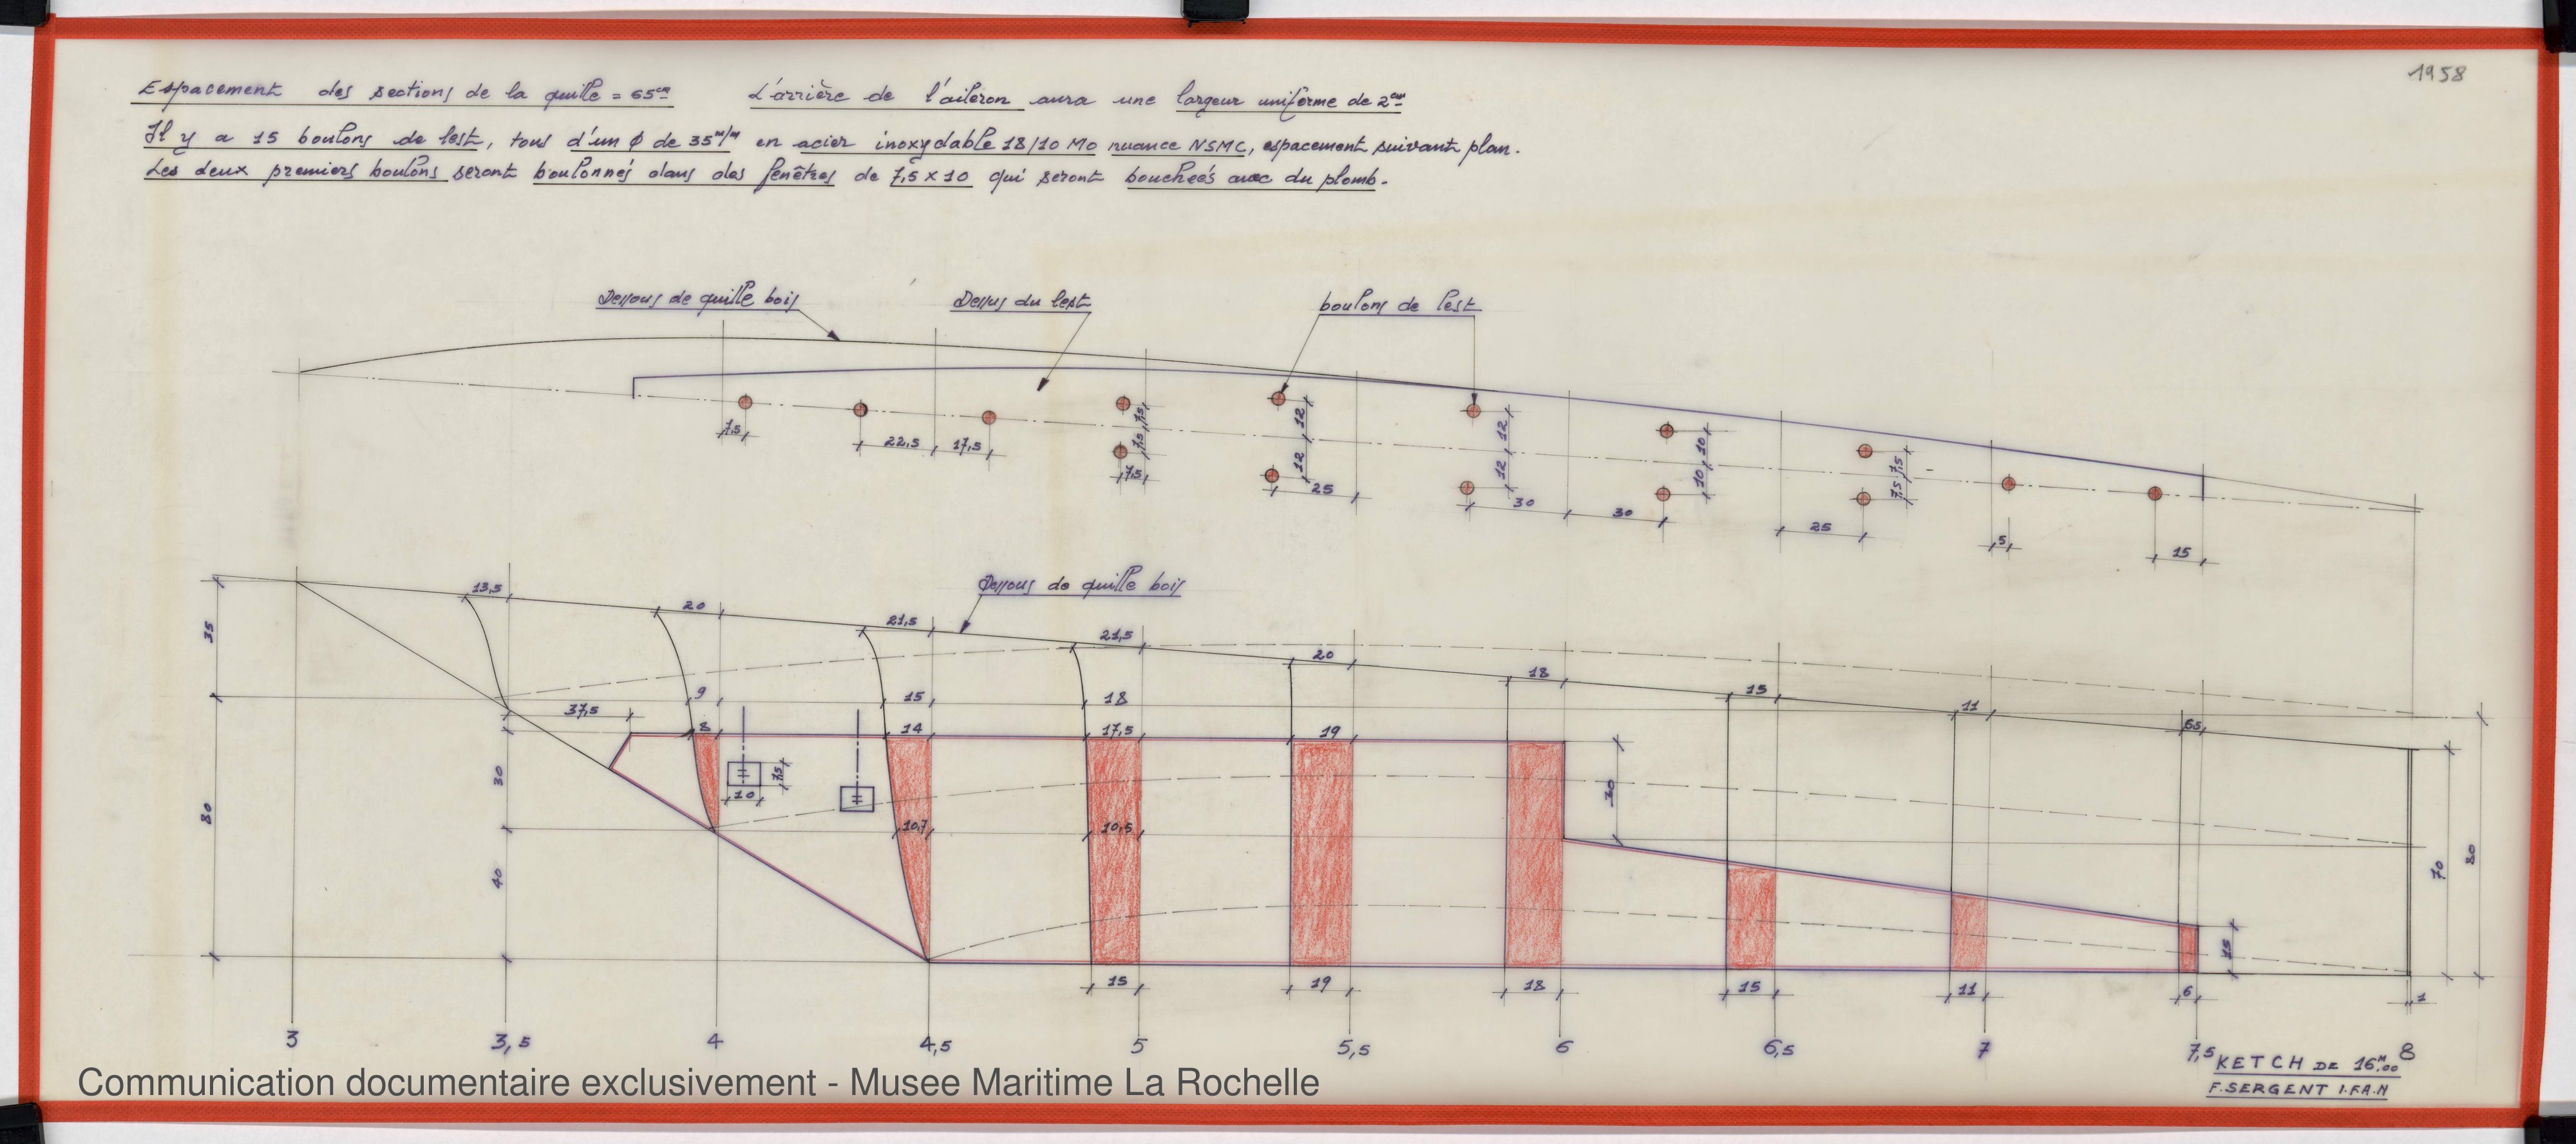 1958
Espacement des sections de la quille = 65cm L'arrière de l'aileron aura une largeur uniforme de 2cm
Il y a 15 boulons de lest, tous d'un ϕ de 35 m/m en acier inoxydable 18/10 Mo nuance NSMC, espacement suivant plan.
Les deux premiers boulons seront boulonnés dans des fenêtres de 7,5 x 10 qui seront bouchées avec du plomb.
Dessous de quille bois Dessus du lest boulons de lest
7,5 22,5 17,5 7,5 7,5 7,5 12 12 25 12 12 30 30 10 10 7,5 7,5 25 5 15
Dessous de quille bois
13,5 20 21,5 21,5 20 18 15 11 6,5
35 9 15 18
37,5 8 14 17,5 19
80 30 10 7,5 30 70 80
10,7 10,5
40 15
15 19 18 15 11 6 1
3 3,5 4 4,5 5 5,5 6 6,5 7 7,5 8
KETCH DE 16M,00
F. SERGENT I.F.A.N
Communication documentaire exclusivement - Musee Maritime La Rochelle